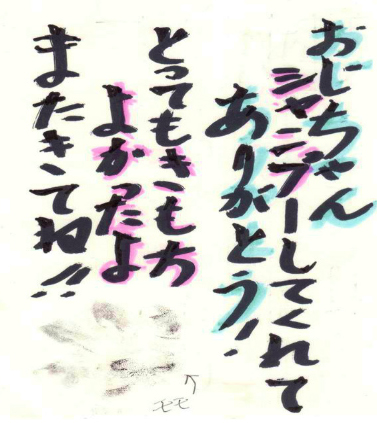 おじちゃん
シャンプーしてくれて
ありがとう!
とってもきもち
よかったよ
またきてね!!
モモ